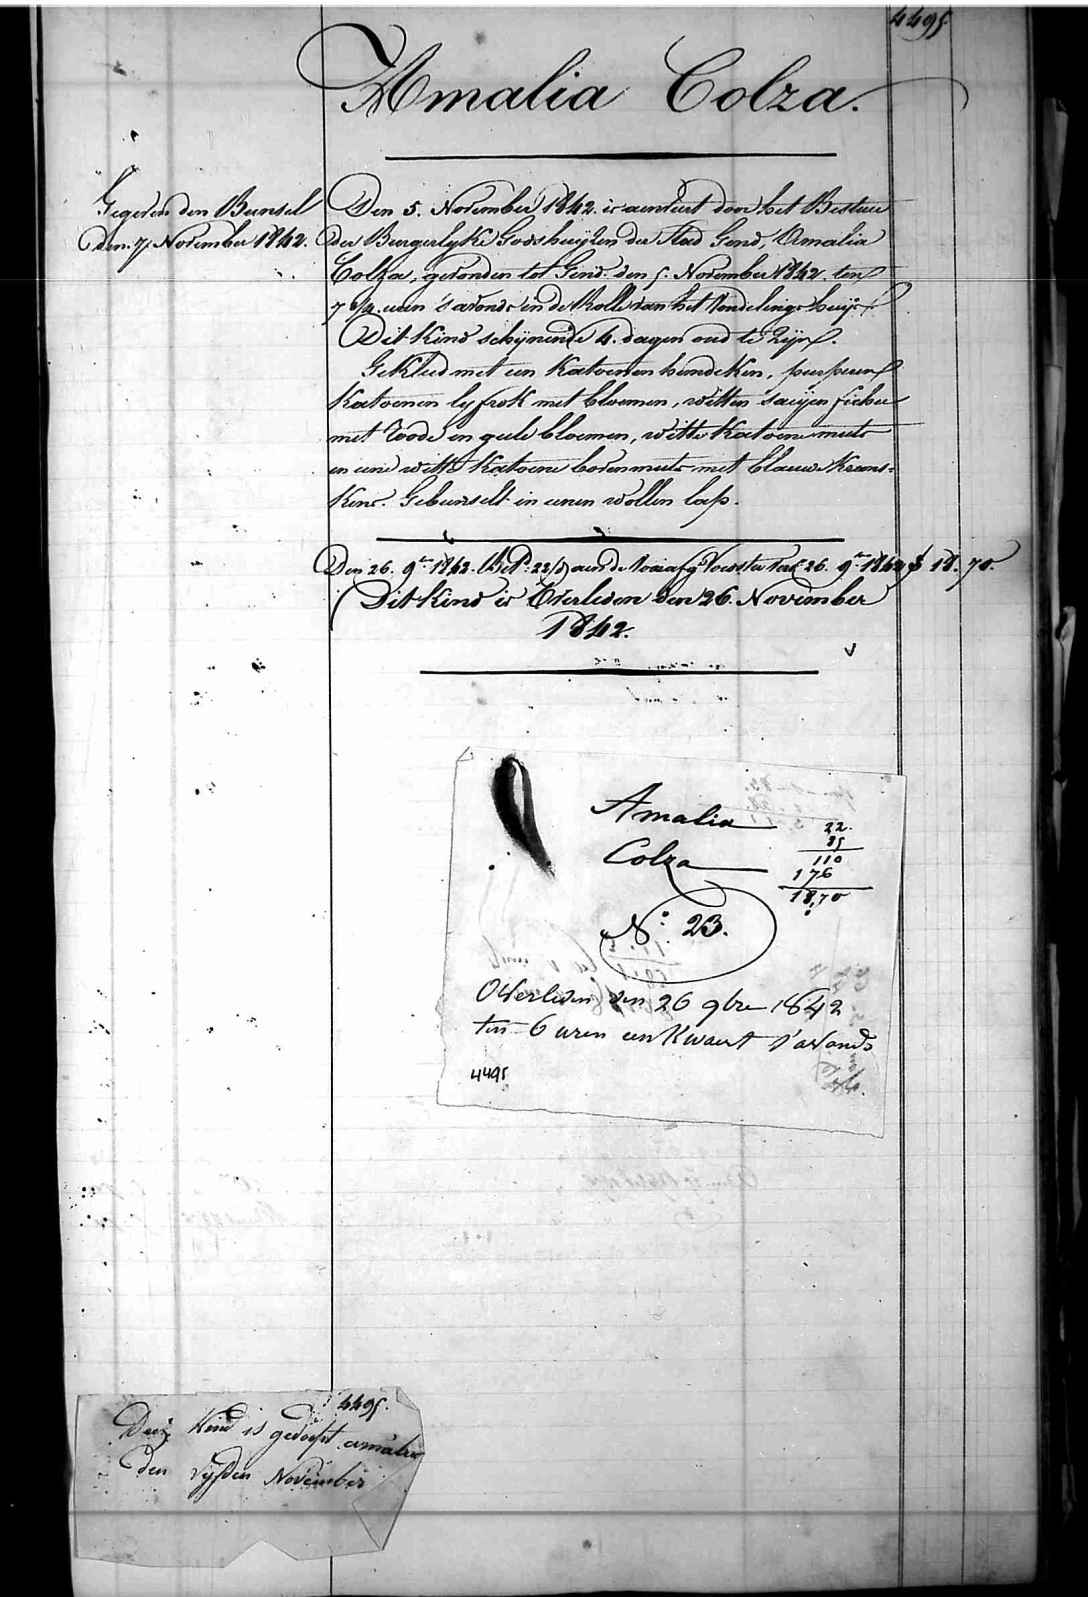 4495.
Amalia Colza.
Gegeven den Bunsel
den 7. November 1842.
Den 5. November 1842. is aenveert door het Bestier
der Burgerlyke Godshuyzen der Stad Gend, Amalia
Colza, gevonden tot Gend den 5. November 1842. ten
7 1/2 uren 's avonds in de Rolle van het Vondelings huys.
Dit Kind schynende 4. dagen oud te zyn.
Gekleed met een Katoenen hemdeken, purperen
Katoenen lyfrok met bloemen, witten saeyen fichu
met roode en geele bloemen, witte Katoene muts
en eene witte Katoene bovenmuts met blauwe Krans-
Kens. Gebunselt in eenen wollen lap.
Den 26. 9.re 1842. Bet. 22 aen de Voedster tot 26. 9.re 1842 f 18. 70
Dit Kind is Overleden den 26. November
1842.
Amalia
Colza
22.
85
110
176
18,70
N.o 23.
Overleden den 26 9bre 1842
ten 6 uren een Kwaert s'avonds
4495
4495.
Deez Kind is gedoopt amalia
den vyfden November